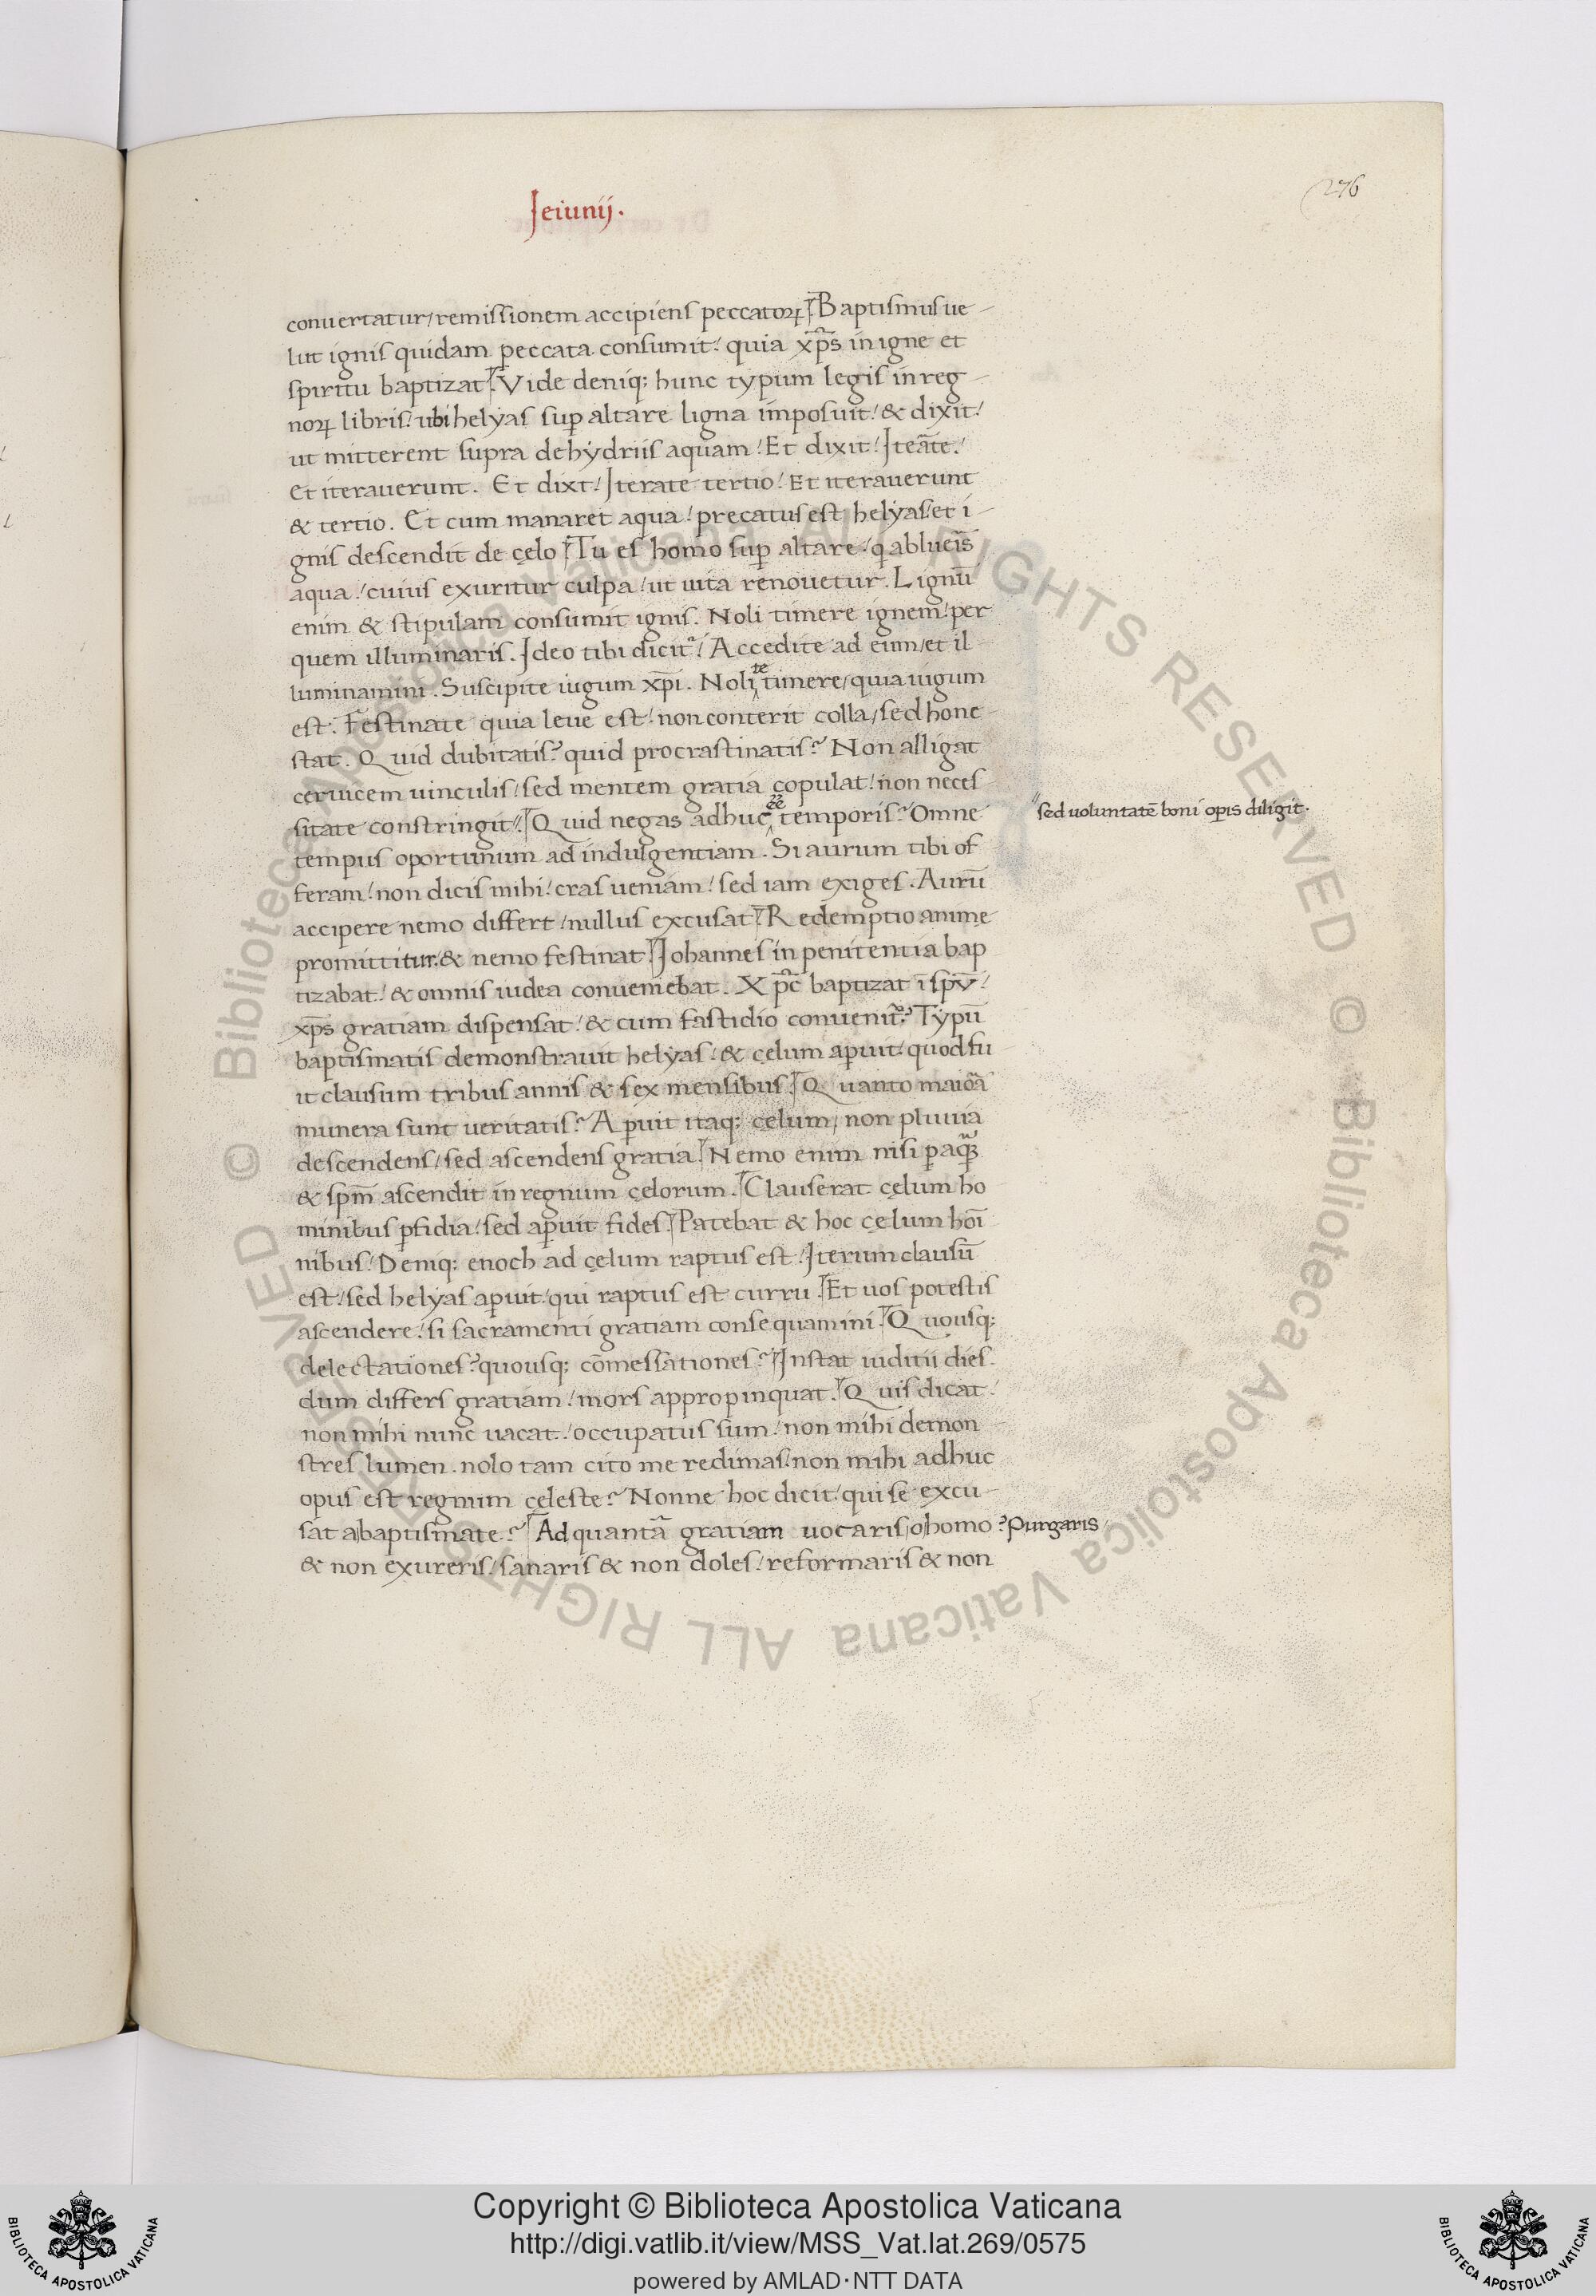 Jeiunij.
276
conuertatur/remissionem accipiens peccatoꝝ. Baptismus ue-
lut ignis quidam peccata consumit: quia xp̄s in igne et
spiritu baptizat. Vide deniq; hunc typum legis in reg-
noꝝ libris: ubi helẏas suꝑ altare ligna imposuit: & dixit:
ut mitterent supra de hẏdriis aquam: Et dixit: Iteāte:
et iterauerunt. Et dixt: Iterate tertio: Et iterauerunt
& tertio. Et cum manaret aqua: precatus est helẏas: et i-
gnis descendit de cęlo. Tu es homo suꝑ altare: q ablueis̄
aqua: cuius exuritur culpa: ut uita renouetur. Lignū
enim & stipulam consumit ignis. Noli timere ignem: per
quem illuminaris. Ideo tibi dicit: Accedite ad eum/et il-
luminamini. Suscipite iugum xp̄i. Noli te timere/quia iugum
est: Festinate quia leue est: non conterit colla/sed hone-
stat. Quid dubitatis? quid procrastinatis? Non alligat
ceruicem uinculis: sed mentem gratia copulat: non neces
sitate constringit: Quid negas adhuc ēē temporis? Omne
sed uoluntatē boni oꝑis diligit.
tempus oportunum ad indulgentiam. Si aurum tibi of
feram: non dicis mihi: cras ueniam: sed iam exiges. Aurū
accipere nemo differt: nullus excusat. Redemptio animę
promittitur: & nemo festinat. Iohannes in penitentia bap
tizabat: & omnis iudea conueniebat. Xp̄c baptizat ī spū:
xp̄s gratiam dispensat: & cum fastidio conuenit? Tẏpū
baptismatis demonstrauit helẏas: & cęlum aꝑuit: quod fu
it clausum tribus annis & sex mensibus. Quanto maioā
munera sunt ueritatis? Aꝑuit itaq; cęlum/ non pluuia
descendens/sed ascendens gratia. Nemo enim nisi ꝑ aq̄ꝫ
& spm̄ ascendit in regnum cęlorum. Clauserat cęlum ho
minibus ꝑfidia: sed aꝑuit fides. Patebat & hoc cęlum hoı̄
nibus: Deniq; enoch ad cęlum raptus est: Iterum clausū
est: sed helẏas aꝑuit: qui raptus est curru. Et uos potestis
ascendere: si sacramenti gratiam consequamini. Quousq;
delectationes? quousq; cōmessationes? Instat iuditii dies:
dum differs gratiam: mors appropinquat. Quis dicat:
non mihi nunc uacat: occupatus sum: non mihi demon
stres lumen. nolo tam cito me redimas: non mihi adhuc
opus est regnum cęleste? Nonne hoc dicit: qui se excu-
sat a baptismate? Ad quantā gratiam uocaris/o homo? Purgaris/
& non exureris: sanaris & non doles: reformaris & non
© Biblioteca Apostolica Vaticana ALL RIGHTS RESERVED © Biblioteca Apostolica Vaticana ALL RIGHTS RESERVED
Copyright © Biblioteca Apostolica Vaticana
http://digi.vatlib.it/view/MSS_Vat.lat.269/0575
powered by AMLAD·NTT DATA
BIBLIOTECA APOSTOLICA VATICANA
BIBLIOTECA APOSTOLICA VATICANA